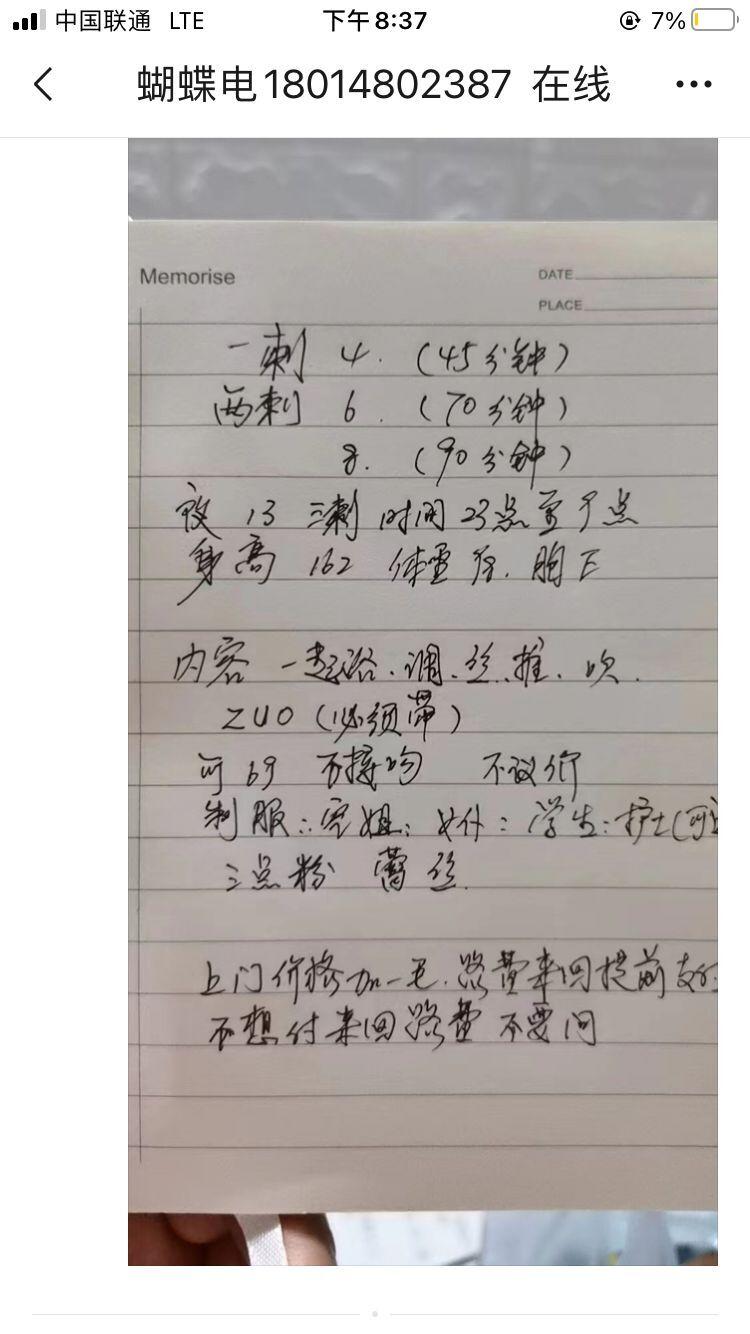 中国联通 LTE 下午8:37 7%
蝴蝶电18014802387 在线
Memorise
DATE
PLACE
一刺 4. (45分钟)
两刺 6. (70分钟)
8. (90分钟)
夜 13 三刺 时间 23点至9点
身高 162 体重 胸E
内容 一起浴.调.丝.推.吹.
ZUO (必须带)
可 69 不接吻 不议价
制服:空姐:女仆:学生:护士(可
三点粉 蕾丝.
上门价格加一毛.路费来回提前支付
不想付来回路费不要问